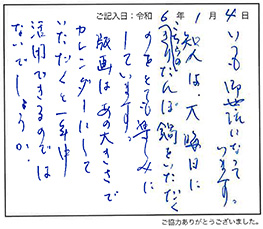 ご記入日：令和 6 年 1 月 4 日
いつも御世話になって
います。
知人は、大晦日に
きりたんぽ鍋をいただく
のをとても楽しみに
しています。
版画はあの大きさで
カレンダーにして
いただくと一年中
活用できるのでは
ないでしょうか。
ご協力ありがとうございました。